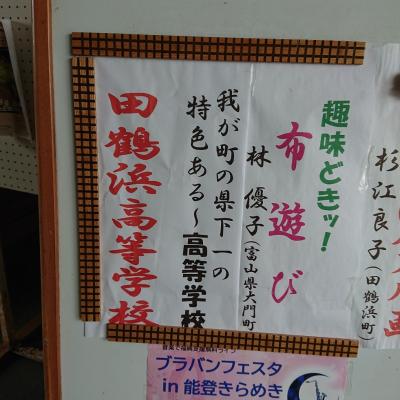 杉江良子(田鶴浜町)
趣味どきッ!
布遊び
林 優子(富山県大門町
我が町の県下一の
特色ある~高等学校
田鶴浜高等学校
ブラバンフェスタ
in 能登きらめき